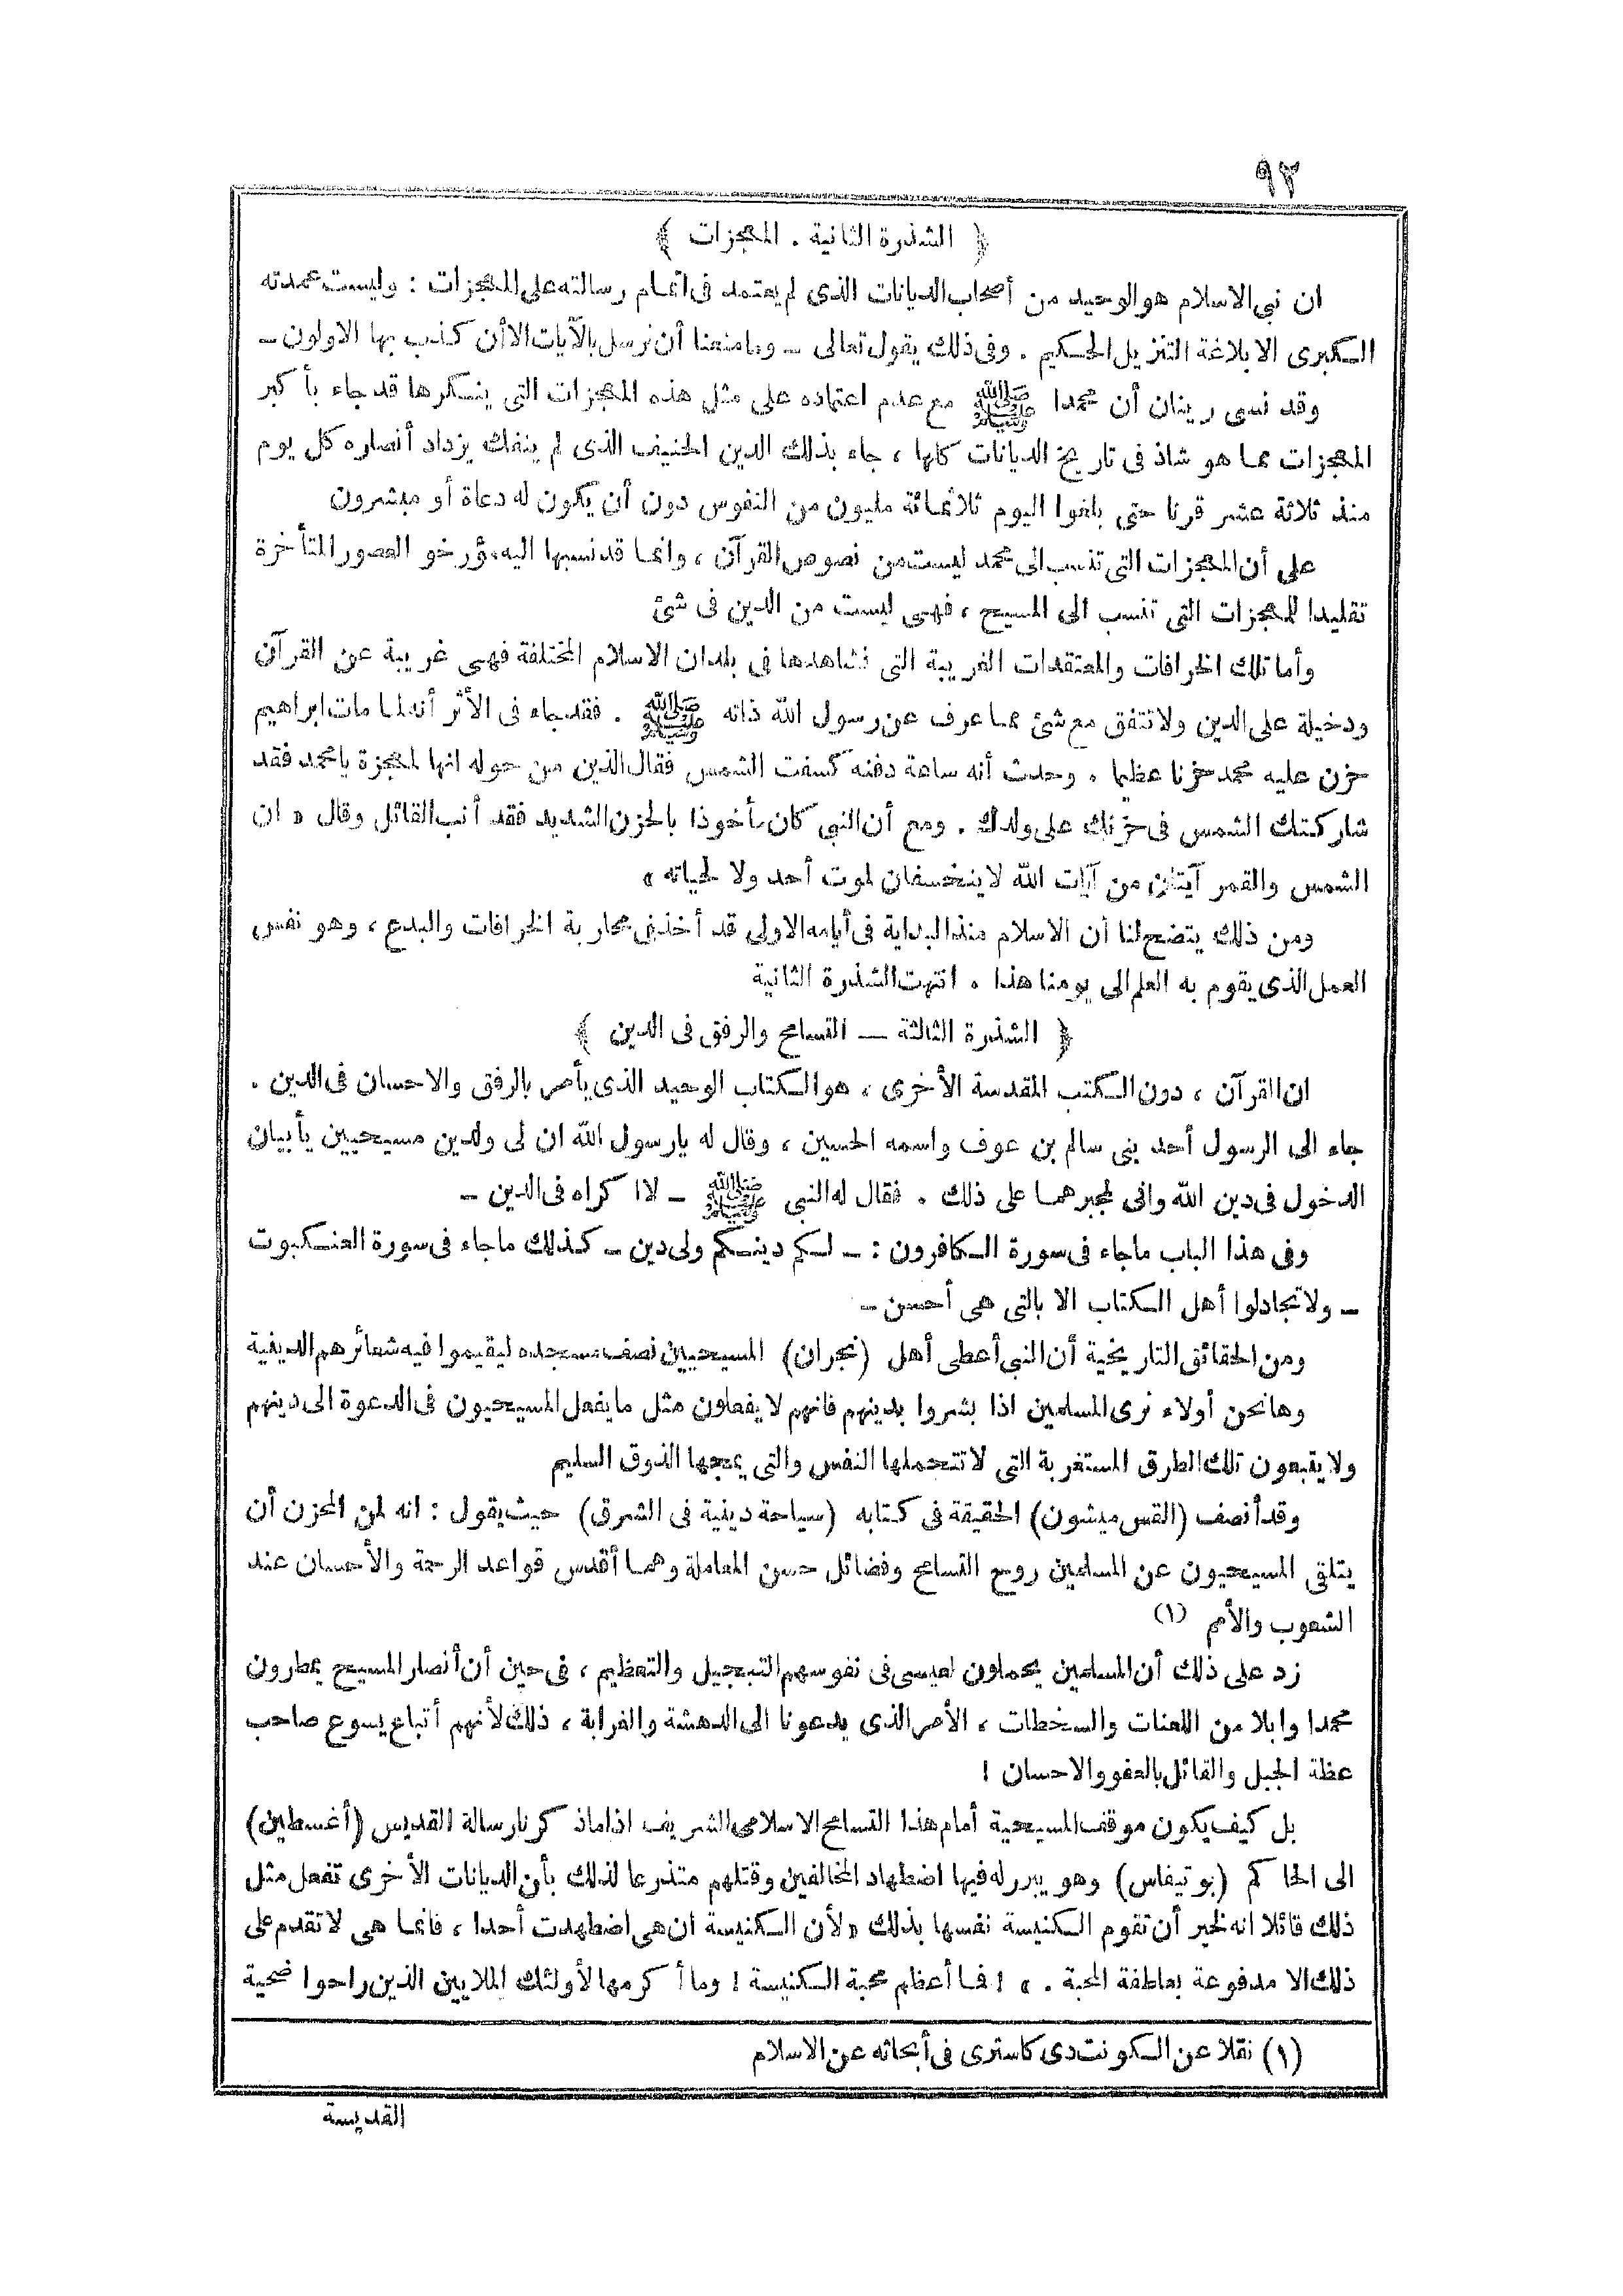 ٩٢
﴿ الشذرة الثانية . المعجزات ﴾
ان نبى الاسلام هو الوحيد من أصحاب الديانات الذى لم يعتمد فى اتمام رسالته على المعجزات : وليست عمدته
الكبرى الا بلاغة التنزيل الحكيم . وفى ذلك يقول تعالى ــ وما منعنا أن نرسل بالآيات الا أن كذب بها الاولون ــ
وقد نسى رينان أن محمدا ﷺ مع عدم اعتماده على مثل هذه المعجزات التى ينكرها قد جاء بأ كبر
المعجزات مما هو شاذ فى تاريخ الديانات كلها ، جاء بذلك الدين الحنيف الذى لم ينفك يزداد أنصاره كل يوم
منذ ثلاثة عشر قرنا حتى بلغوا اليوم ثلاثمائة مليون من النفوس دون أن يكون له دعاة أو مبشرون
على أن المعجزات التى تنسب الى محمد ليست من نصوص القرآن ، وانما قد نسبها اليه مؤرخو العصور المتأخرة
تقليدا للمعجزات التى تنسب الى المسيح ، فهى ليست من الدين فى شئ
وأما تلك الخرافات والمعتقدات الغريبة التى نشاهدها فى بلدان الاسلام المختلفة فهى غريبة عن القرآن
ودخيلة على الدين ولا تتفق مع شئ مما عرف عن رسول الله ذاته ﷺ . فقد جاء فى الأثر أنه لما مات ابراهيم
حزن عليه محمد حزنا عظيما . وحدث أنه ساعة دفنه كسفت الشمس فقال الذين من حوله انها لمعجزة يا محمد فقد
شاركتك الشمس فى حزنك على ولدك . ومع أن النبى كان مأخوذا بالحزن الشديد فقد أنب القائل وقال « ان
الشمس والقمر آيتان من آيات الله لا ينخسفان لموت أحد ولا لحياته »
ومن ذلك يتضح لنا أن الاسلام منذ البداية فى أيامه الاولى قد أخذ فى محاربة الخرافات والبدع ، وهو نفس
العمل الذى يقوم به العلم الى يومنا هذا . انتهت الشذرة الثانية
﴿ الشذرة الثالثة ــ التسامح والرفق فى الدين ﴾
ان القرآن ، دون الكتب المقدسة الأخرى ، هو الكتاب الوحيد الذى يأمر بالرفق والاحسان فى الدين .
جاء الى الرسول أحد بنى سالم بن عوف واسمه الحسين ، وقال له يارسول الله ان لى ولدين مسيحيين يأبيان
الدخول فى دين الله وانى لمجبرهما على ذلك . فقال له النبى ﷺ ــ لا ا كراه فى الدين ــ
وفى هذا الباب ماجاء فى سورة الكافرون : ــ لكم دينكم ولى دين ــ كذلك ماجاء فى سورة العنكبوت
ــ ولا تجادلوا أهل الكتاب الا بالتى هى أحسن ــ
ومن الحقائق التاريخية أن النبى أعطى أهل (نجران) المسيحيين نصف مسجده ليقيموا فيه شعائرهم الدينية
وها نحن أولاء نرى المسلمين اذا بشروا بدينهم فانهم لا يفعلون مثل ما يفعل المسيحيون فى الدعوة الى دينهم
ولا يتبعون تلك الطرق المستغربة التى لا تتحملها النفس والتى يمجها الذوق السليم
وقد أنصف (القس ميشون) الحقيقة فى كتابه (سياحة دينية فى الشرق) حيث يقول : انه لمن المحزن أن
يتلقى المسيحيون عن المسلمين روح التسامح وفضائل حسن المعاملة وهما أقدس قواعد الرحمة والأحسان عند
الشعوب والأمم (١)
زد على ذلك أن المسلمين يحملون لعيسى فى نفوسهم التبجيل والتعظيم ، فى حين أن أنصار المسيح يمطرون
محمدا وابلا من اللعنات والسخطات ، الأمر الذى يدعونا الى الدهشة والغرابة ، ذلك لأنهم أتباع يسوع صاحب
عظة الجبل والقائل بالعفو والاحسان !
بل كيف يكون موقف المسيحية أمام هذا التسامح الاسلامى الشريف اذا ماذ كرنا رسالة القديس (أغسطين)
الى الحا كم (بوتيفاس) وهو يبرر له فيها اضطهاد المخالفين وقتلهم متذرعا لذلك بأن الديانات الأخرى تفعل مثل
ذلك قائلا انه لخير أن تقوم الكنيسة نفسها بذلك « لأن الكنيسة ان هى اضطهدت أحدا ، فانما هى لا تقدم على
ذلك الا مدفوعة بعاطفة المحبة . » ! فما أعظم محبة الكنيسة ! وما أ كرمها لأولئك الملايين الذين راحوا ضحية
(١) نقلا عن الكونت دى كاسترى فى أبحاثه عن الاسلام
القديسة